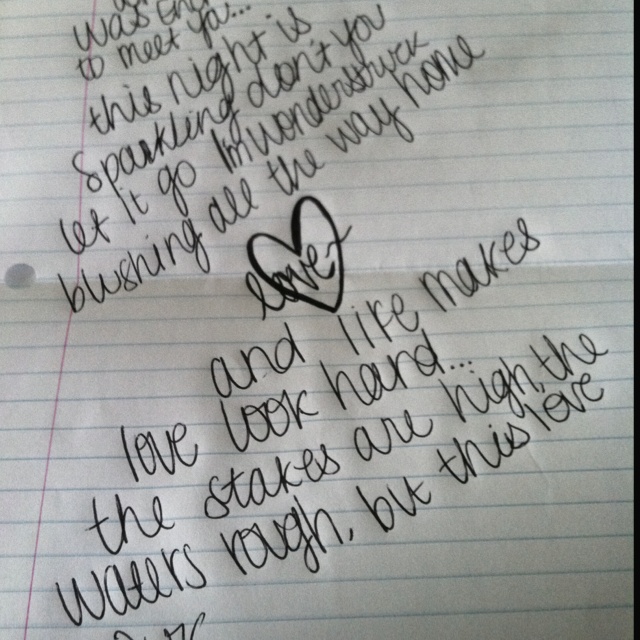 to meet ya...
this night is
sparkling don't you
let it go I'm wonderstruck
blushing all the way home
love
and life makes
love look hard...
the stakes are high, the
waters rough, but this love